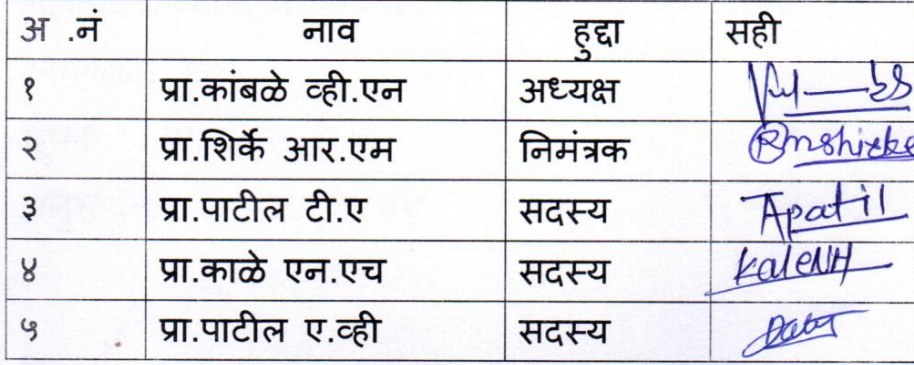 अ .नं नाव हुद्दा सही
१ प्रा.कांबळे व्ही.एन अध्यक्ष
२ प्रा.शिर्के आर.एम निमंत्रक Rmshirke
३ प्रा.पाटील टी.ए सदस्य Tapatil
४ प्रा.काळे एन.एच सदस्य KaleNH
५ प्रा.पाटील ए.व्ही सदस्य